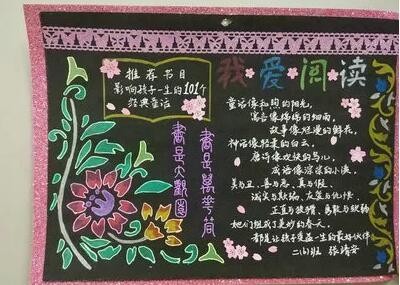 我爱阅读
推荐书目
影响孩子一生的101个
经典童话
书是万花筒
书是大观园
童话像和煦的阳光,
寓言像绵绵的细雨,
故事像烂漫的鲜花,
神话像轻柔的白云,
唐诗像欢快的鸟儿,
成语像淙淙的小溪
美与丑、善与恶、真与假、
诚实与欺骗、友爱与仇恨
正直与狡猾、勇敢与软弱
她们组成了美妙的春天,
都是让孩子受益一生的最好伙伴